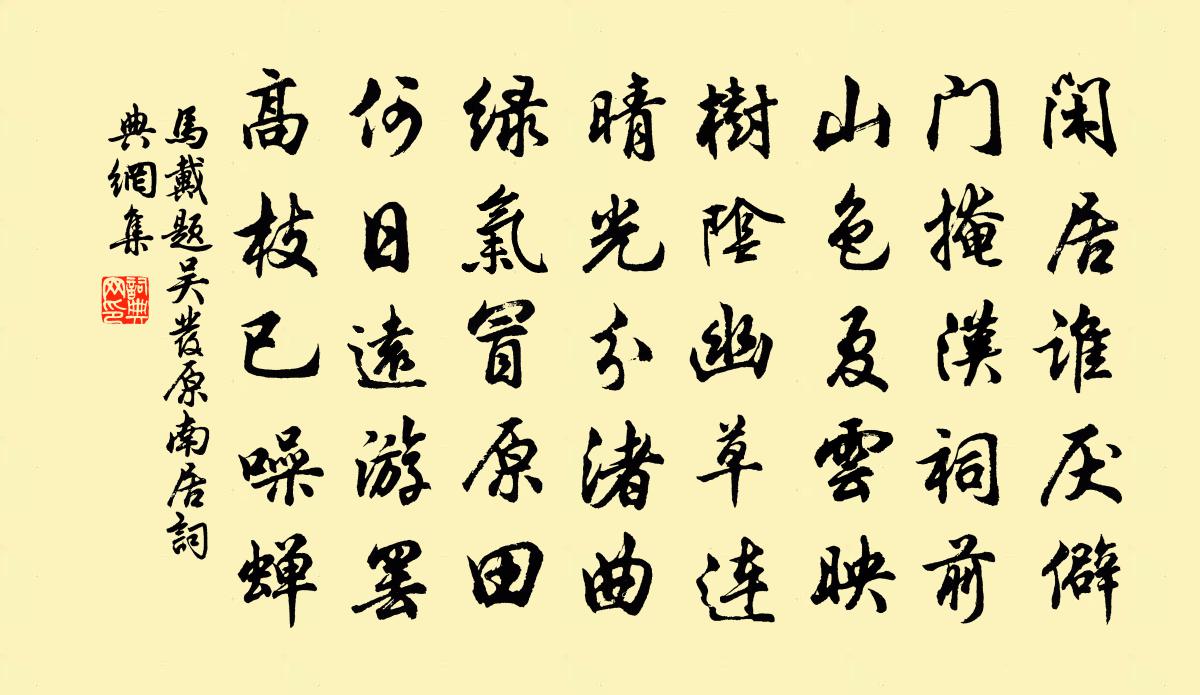 闲居谁厌僻
门掩漢祠前
山色夏雲映
樹陰幽草連
晴光分渚曲
绿氣冒原田
何日遠游罢
高枝已噪蝉
馬戴题吴發原南居詞
典網集
詞典
网印